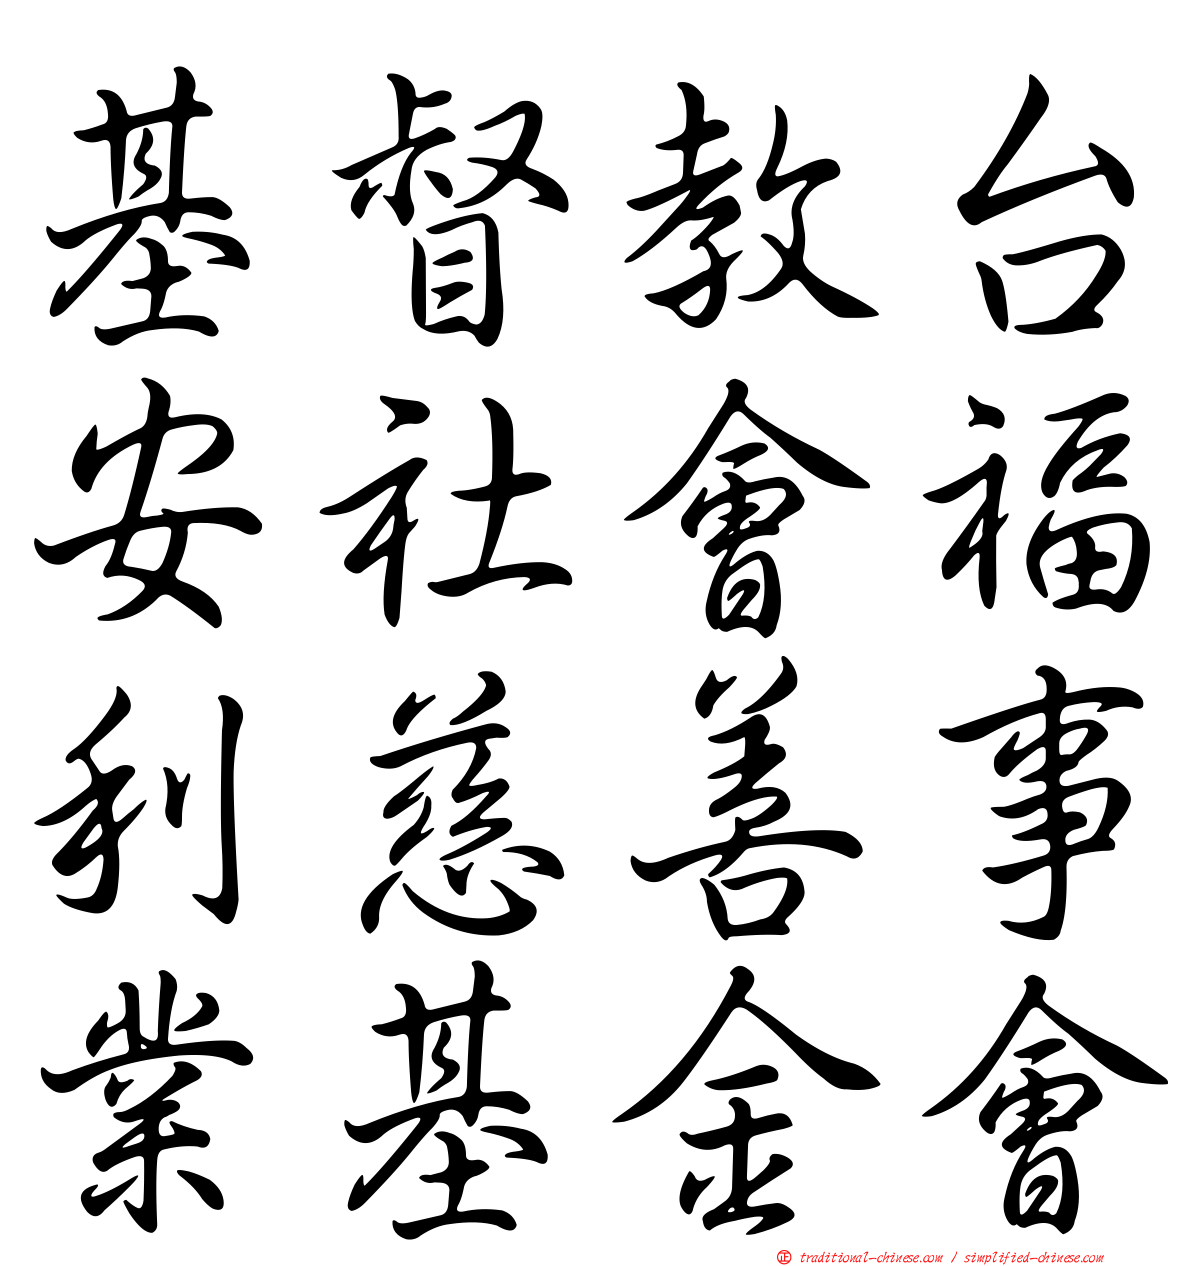 基督教台
安社會福
利慈善事
業基金會
正 traditional-chinese.com / simplified-chinese.com